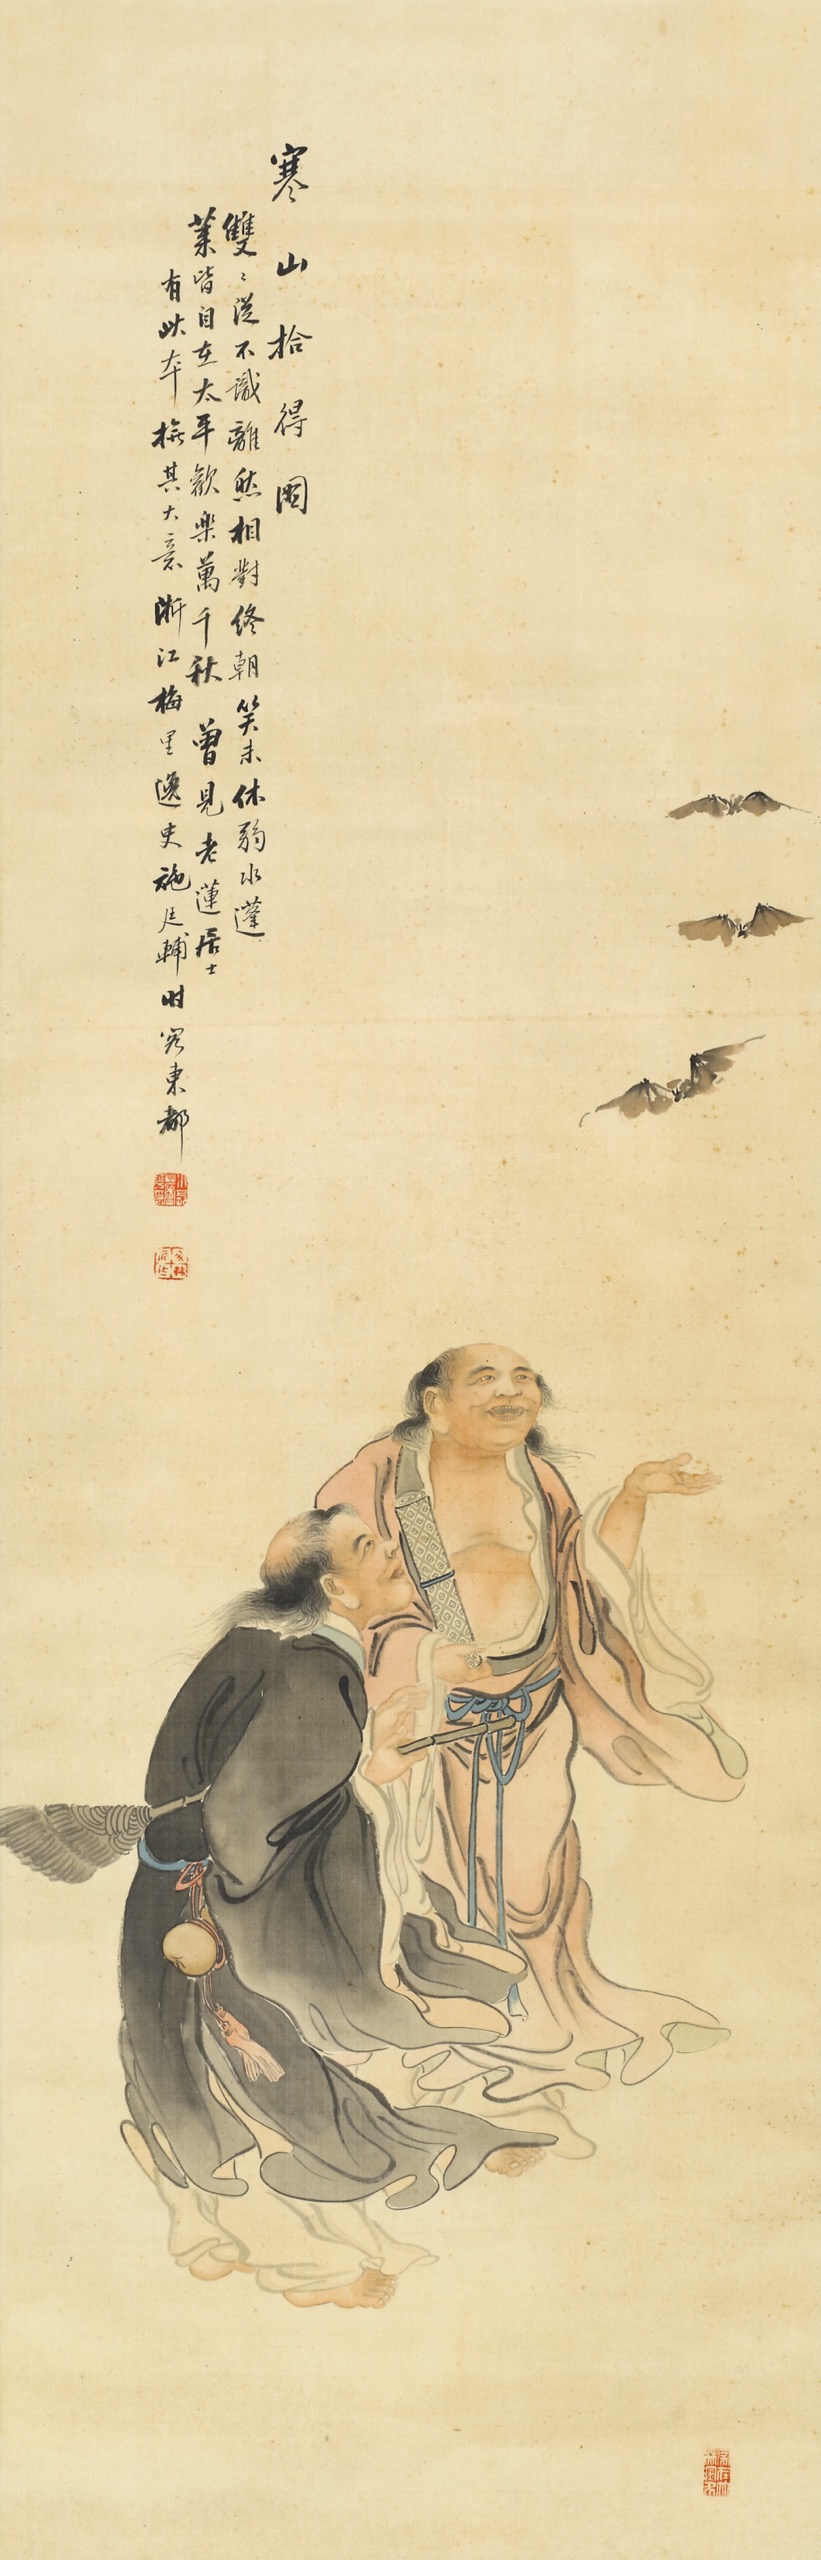 寒山拾得圖
雙〻從不識離愁相對終朝笑未休弱水蓬
萊皆自在太平歡樂萬千秋 曾見老蓮居士
有此本橅其大意浙江梅里逸史施廷輔時客東都